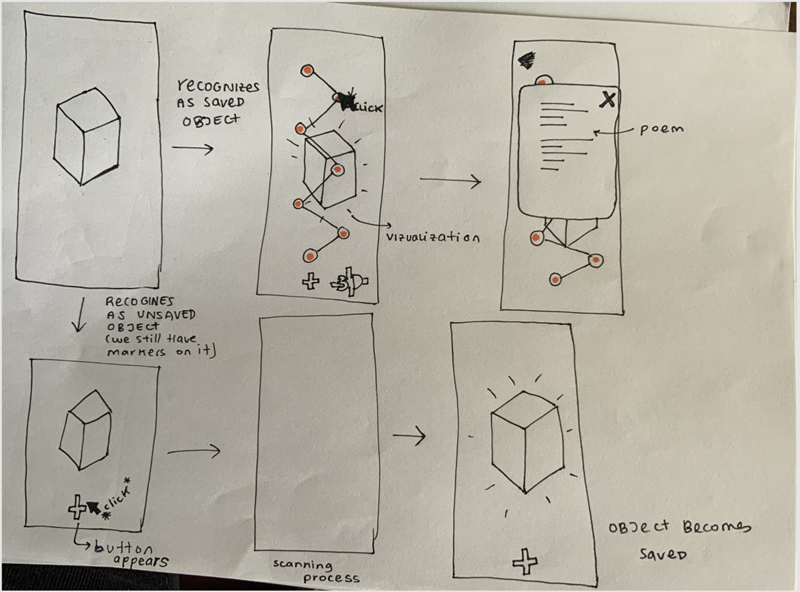 recognizes
AS SAVED
OBJECT
CLICK
vizualization
X
poem
RECOGINES
AS UNSAVED
OBJECT
(we still have
markers on it)
*click*
button
appears
scanning
process
OBJECT BECOMES
saved